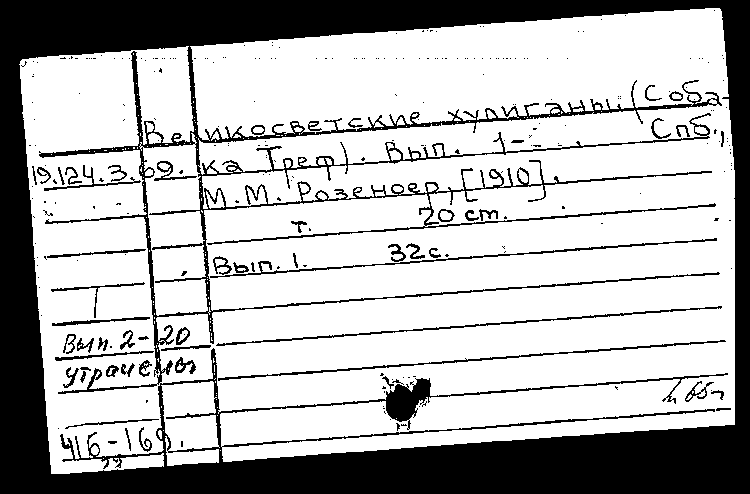 Великосветские хулиганы (Соба-
19.124.3.69. ка Треф). Вып. 1- . Спб.,
М.М. Розеноер, [1910].
т. 20 ст.
Вып. 1. 32 с.
Вып. 2-20
утрачены
41б-169.